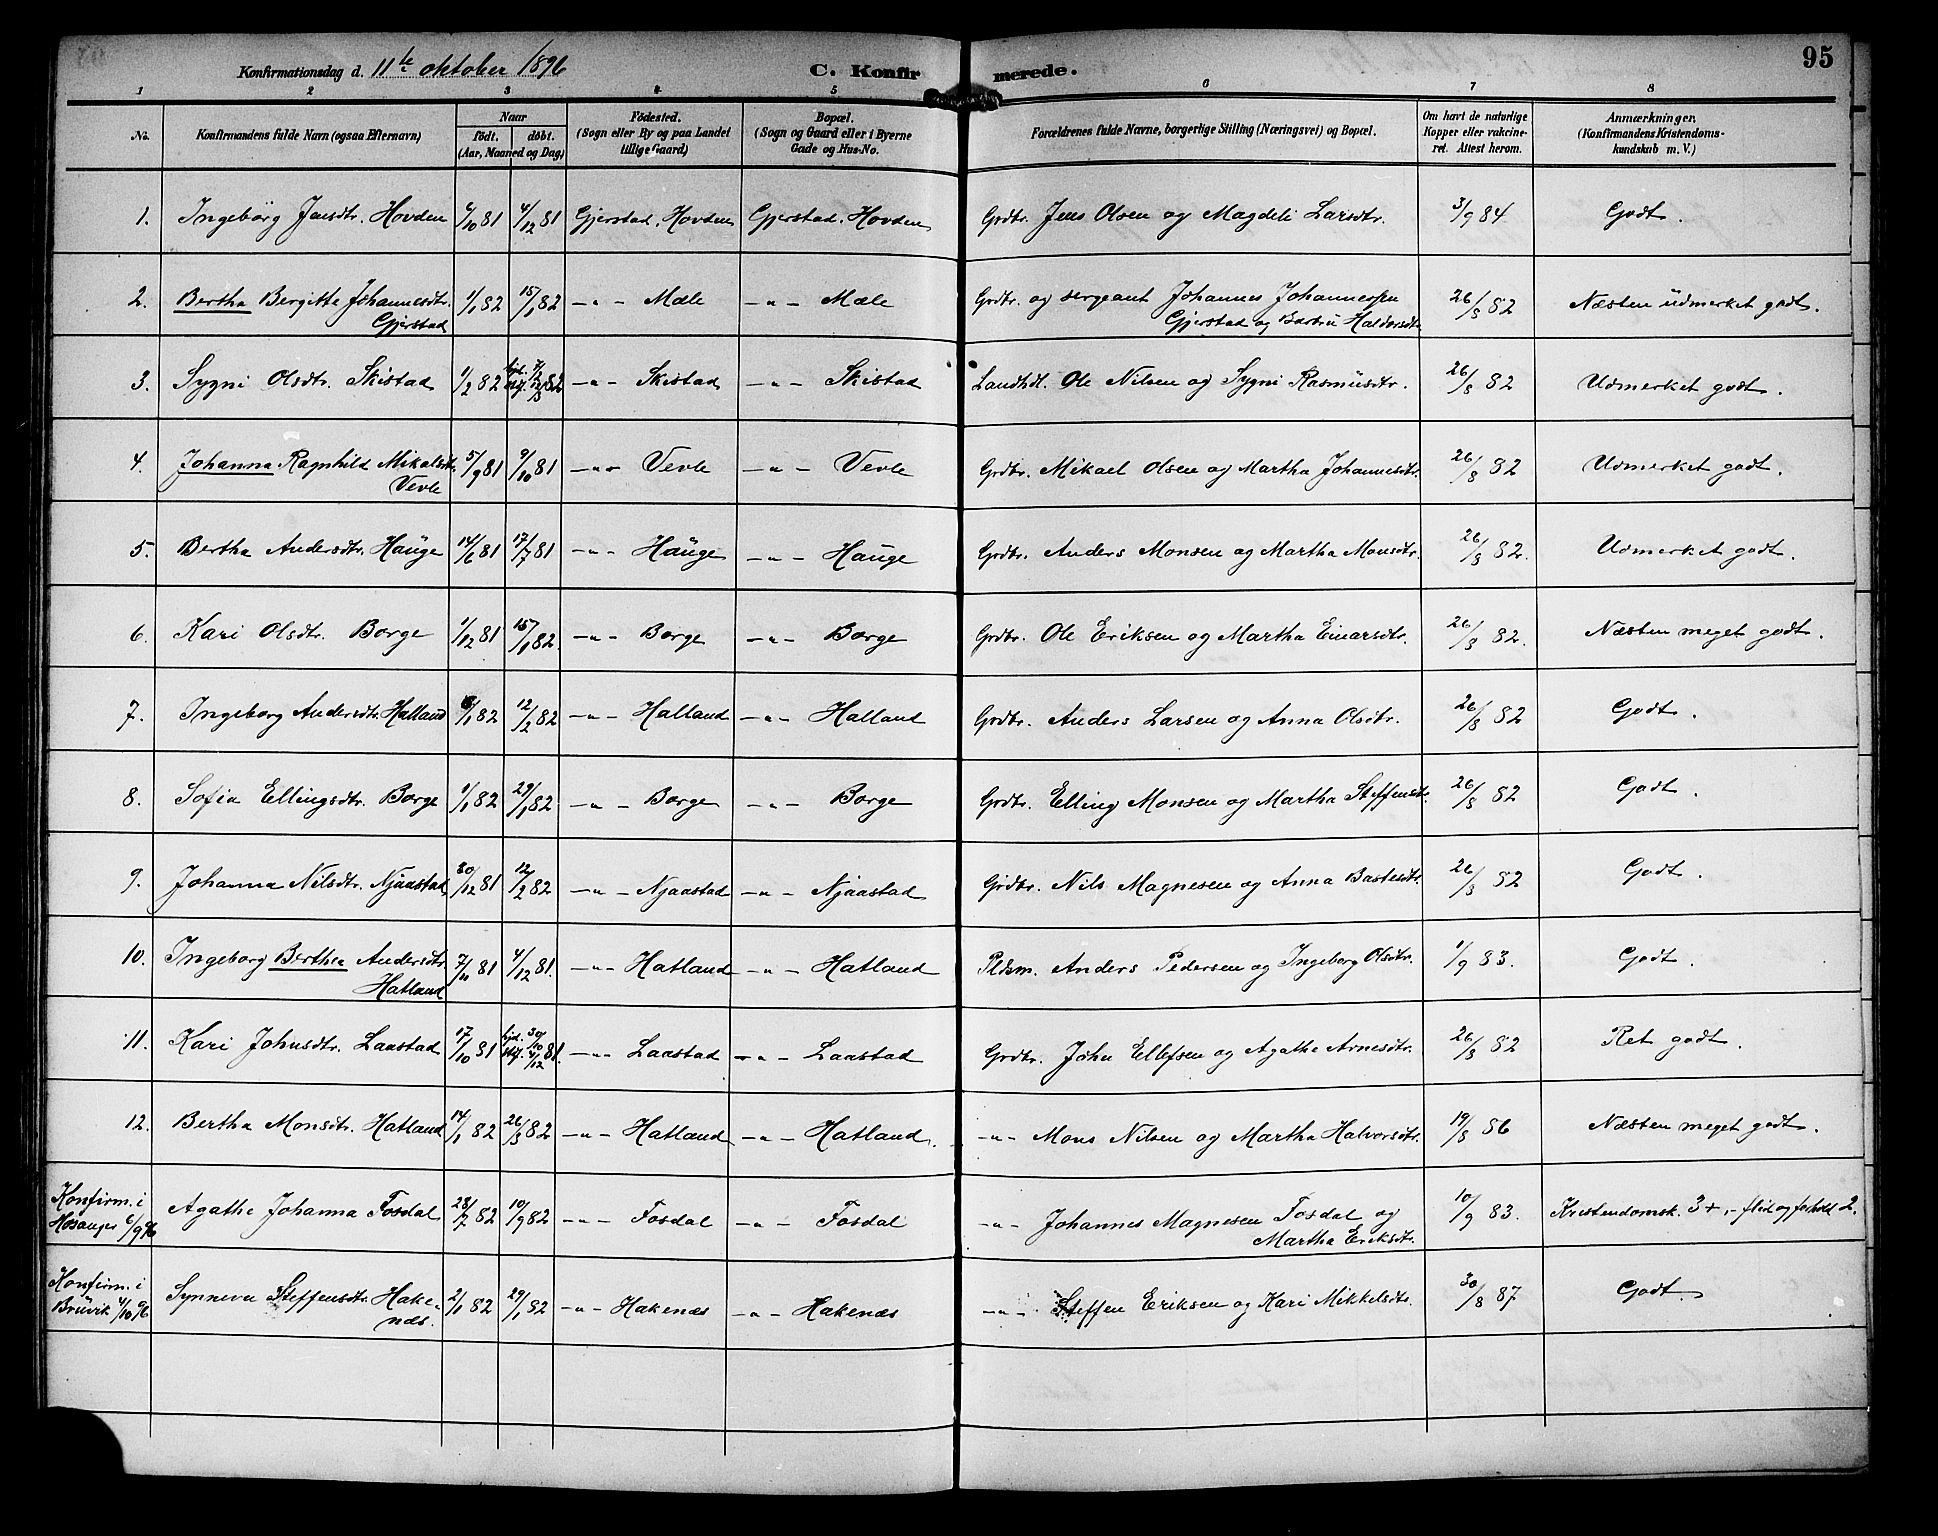 95
Konfirmationsdag d. 11te oktober 1896
C. Konfirmerede.
1 2 3 4 5 6 7 8
No. Konfirmandens fulde Navn (ogsaa Efternavn) Naar født. døbt. (Aar, Maaned og Dag) Fødested. (Sogn eller By og paa Landet tillige Gaard) Bopæl. (Sogn og Gaard eller i Byerne Gade og Hus-No. Forældrenes fulde Navne, borgerlige Stilling (Næringsvei) og Bopæl. Om havt de naturlige Kopper eller vakcineret. Attest herom. Anmærkninger. (Konfirmandens Kristendomskundskab m. V.)
1. Ingebörg Jensdtr. Hovden 6/10 81 4/12 81 Gjerstad. Hovden Gjerstad. Hovden Grdbr. Jens Olsen og Magdeli Larsdtr. 3/9 84 Godt.
2. Bertha Bergitte Johannesdtr. Gjerstad 1/1 82 15/1 82 -"- Mæle -"- Mæle Grdbr. og sergeant Johannes Johannessen Gjerstad og Barbru Haldorsdtr. 26/8 82 Næsten üdmerket godt.
3. Sygni Olsdtr. Skistad 1/2 82 hjd. 7/2 12/3 82 -"- Skistad -"- Skistad Landhdl. Ole Nilsen og Sygni Rasmusdtr. 26/8 82 Udmerket godt.
4. Johanna Ragnhild Mikalsdtr. Vevle 5/9 81 9/10 81 -"- Vevle -"- Vevle Grdbr. Mikael Olsen og Martha Johannesdtr. 26/8 82 Udmerket godt.
5. Bertha Andersdtr. Haüge 14/6 81 17/7 81 -"- Haüge -"- Haüge Grdbr. Anders Monsen og Martha Monsdtr. 26/8 82. Udmerket godt.
6. Kari Olsdtr. Borge 1/12 81 15/1 82. -"- Borge -"- Borge Grdbr. Ole Eriksen og Martha Einarsdtr. 26/8 82. Næsten meget godt.
7. Ingeborg Andersdtr. Halland /1 82 12/2 82 -"- Halland -"- Halland Grdbr. Anders Larsen og Anna Olsdtr. 26/8 82 Godt.
8. Sofia Ellingsdtr. Borge 1/1 82 29/1 82 -"- Borge -"- Borge Grdbr. Elling Monsen og Martha Steffensdtr. 26/8 82 Godt.
9. Johanna Nilsdtr. Njaastad 30/12 81 12/2 82 -"- Njaastad -"- Njaastad Grdbr. Nils Magnesen og Anna Bastesdtr. 26/8 82 Godt.
10. Ingeborg Berthea Andersdtr. Hatland 7/11 81 4/12 81. -"- Hatland -"- Hatland Pldsm. Anders Pedersen og Ingeborg Olsdtr. 1/9 83. Godt.
11. Kari Johnsdtr. Laastad 17/10 81 hjd. 30/10 4/12 81. -"- Laastad -"- Laastad Grdbr. John Ellefsen og Agathe Arnesdtr. 26/8 82 Ret godt.
12. Bertha Monsdtr. Hatland 14/1 82 26/3 82 -"- Hatland -"- Hatland. -"- Mons Nilsen og Martha Halvorsdtr. 19/8 86 Næsten meget godt.
Konfirm. i Hosanger 6/9 96 Agathe Johanna Fosdal 28/7 82 10/9 82 -"- Fosdal -"- Fosdal -"- Johannes Magnesen Fosdal og Martha Eriksdtr. 10/9 83. Kristendomsk. 3+, flid og forhold 2.
Konfirm. i Brüvik 4/10 96 Synneva Steffensdtr. Hakenæs. 2/1 82 29/1 82 -"- Hakenæs -"- Hakenæs -"- Steffen Eriksen og Kari Mikkelsdtr. 30/8 87 Godt.